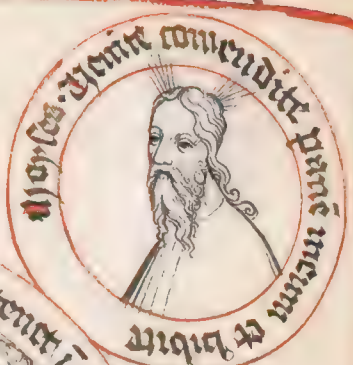 Moyses · Venite comendite panē meum et bibite